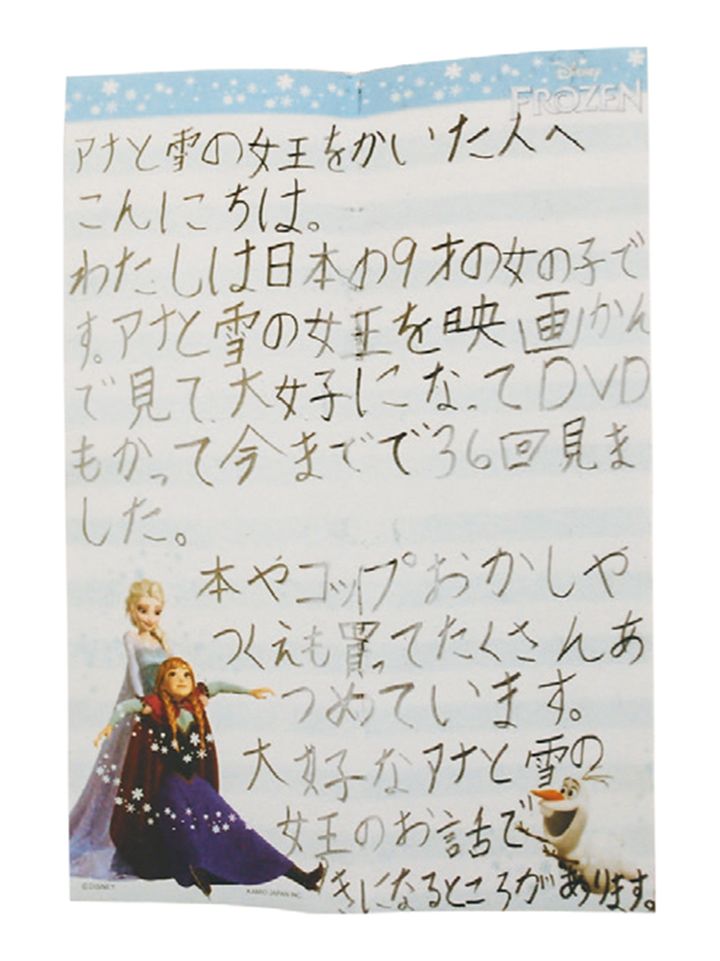 Disney
FROZEN
アナと雪の女王をかいた人へ
こんにちは。
わたしは日本の9才の女の子で
す。アナと雪の女王を映画かん
で見て大好になってDVD
もかって今までで36回見ま
した。
本やコップおかしや
つくえも買ってたくさんあ
つめています。
大好なアナと雪の
女王のお話で
きになるところがあります。
©DISNEY
KAMIO JAPAN INC.